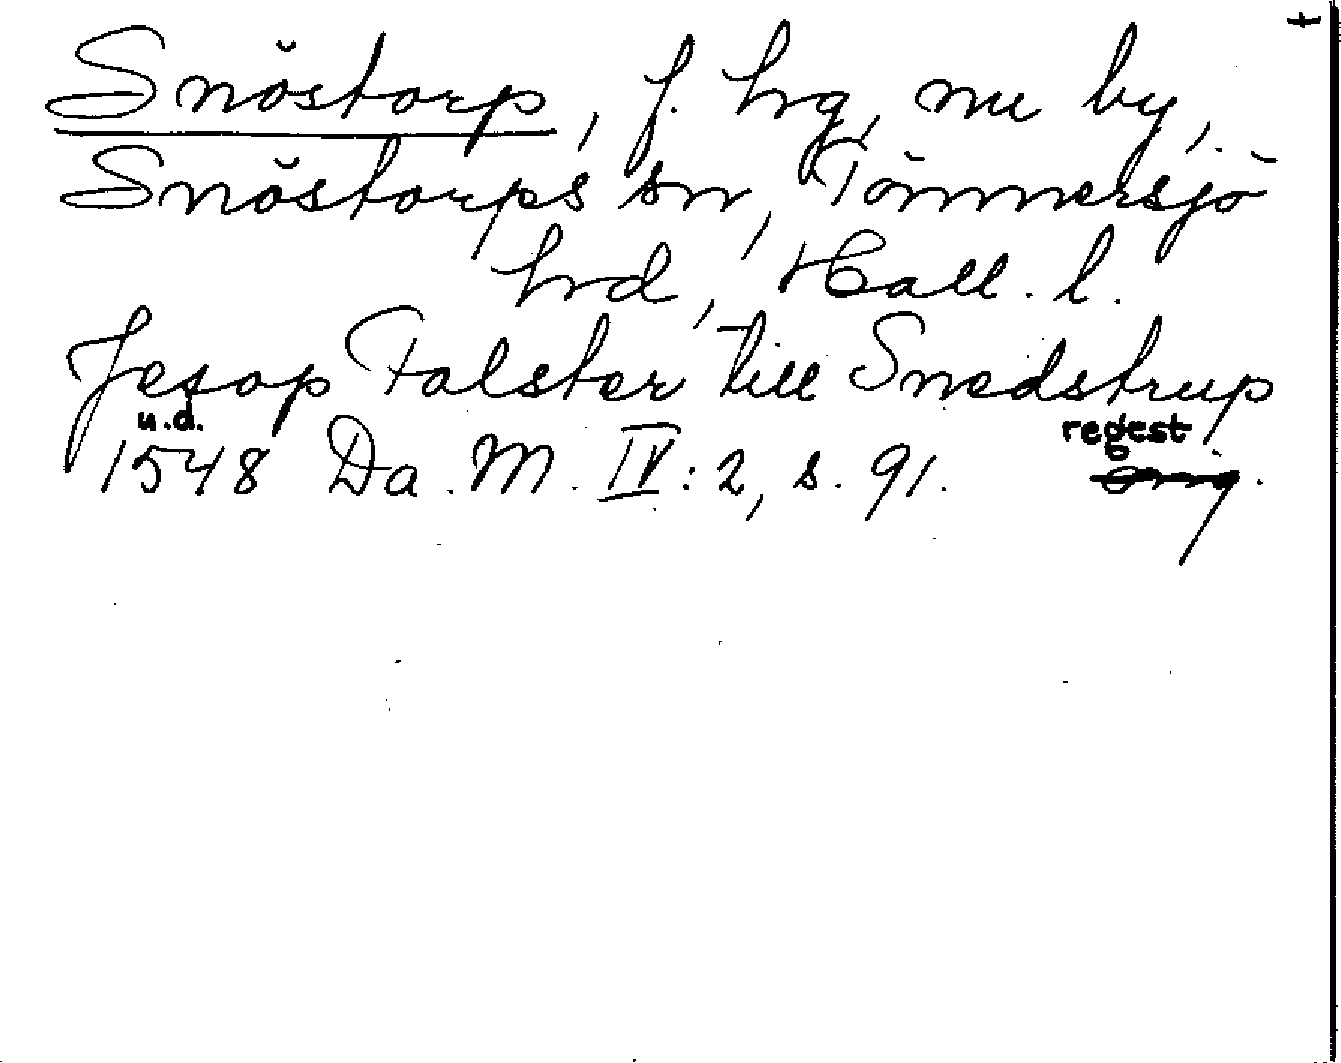 t
Snöstorp, f. hrg, nu by,
Snöstorps sn, Tönnersjö
hrd, Hall. l.
Jesop Falster till Snedstrup
u.d. regest
1548 Da. M. IV: 2, s. 91.